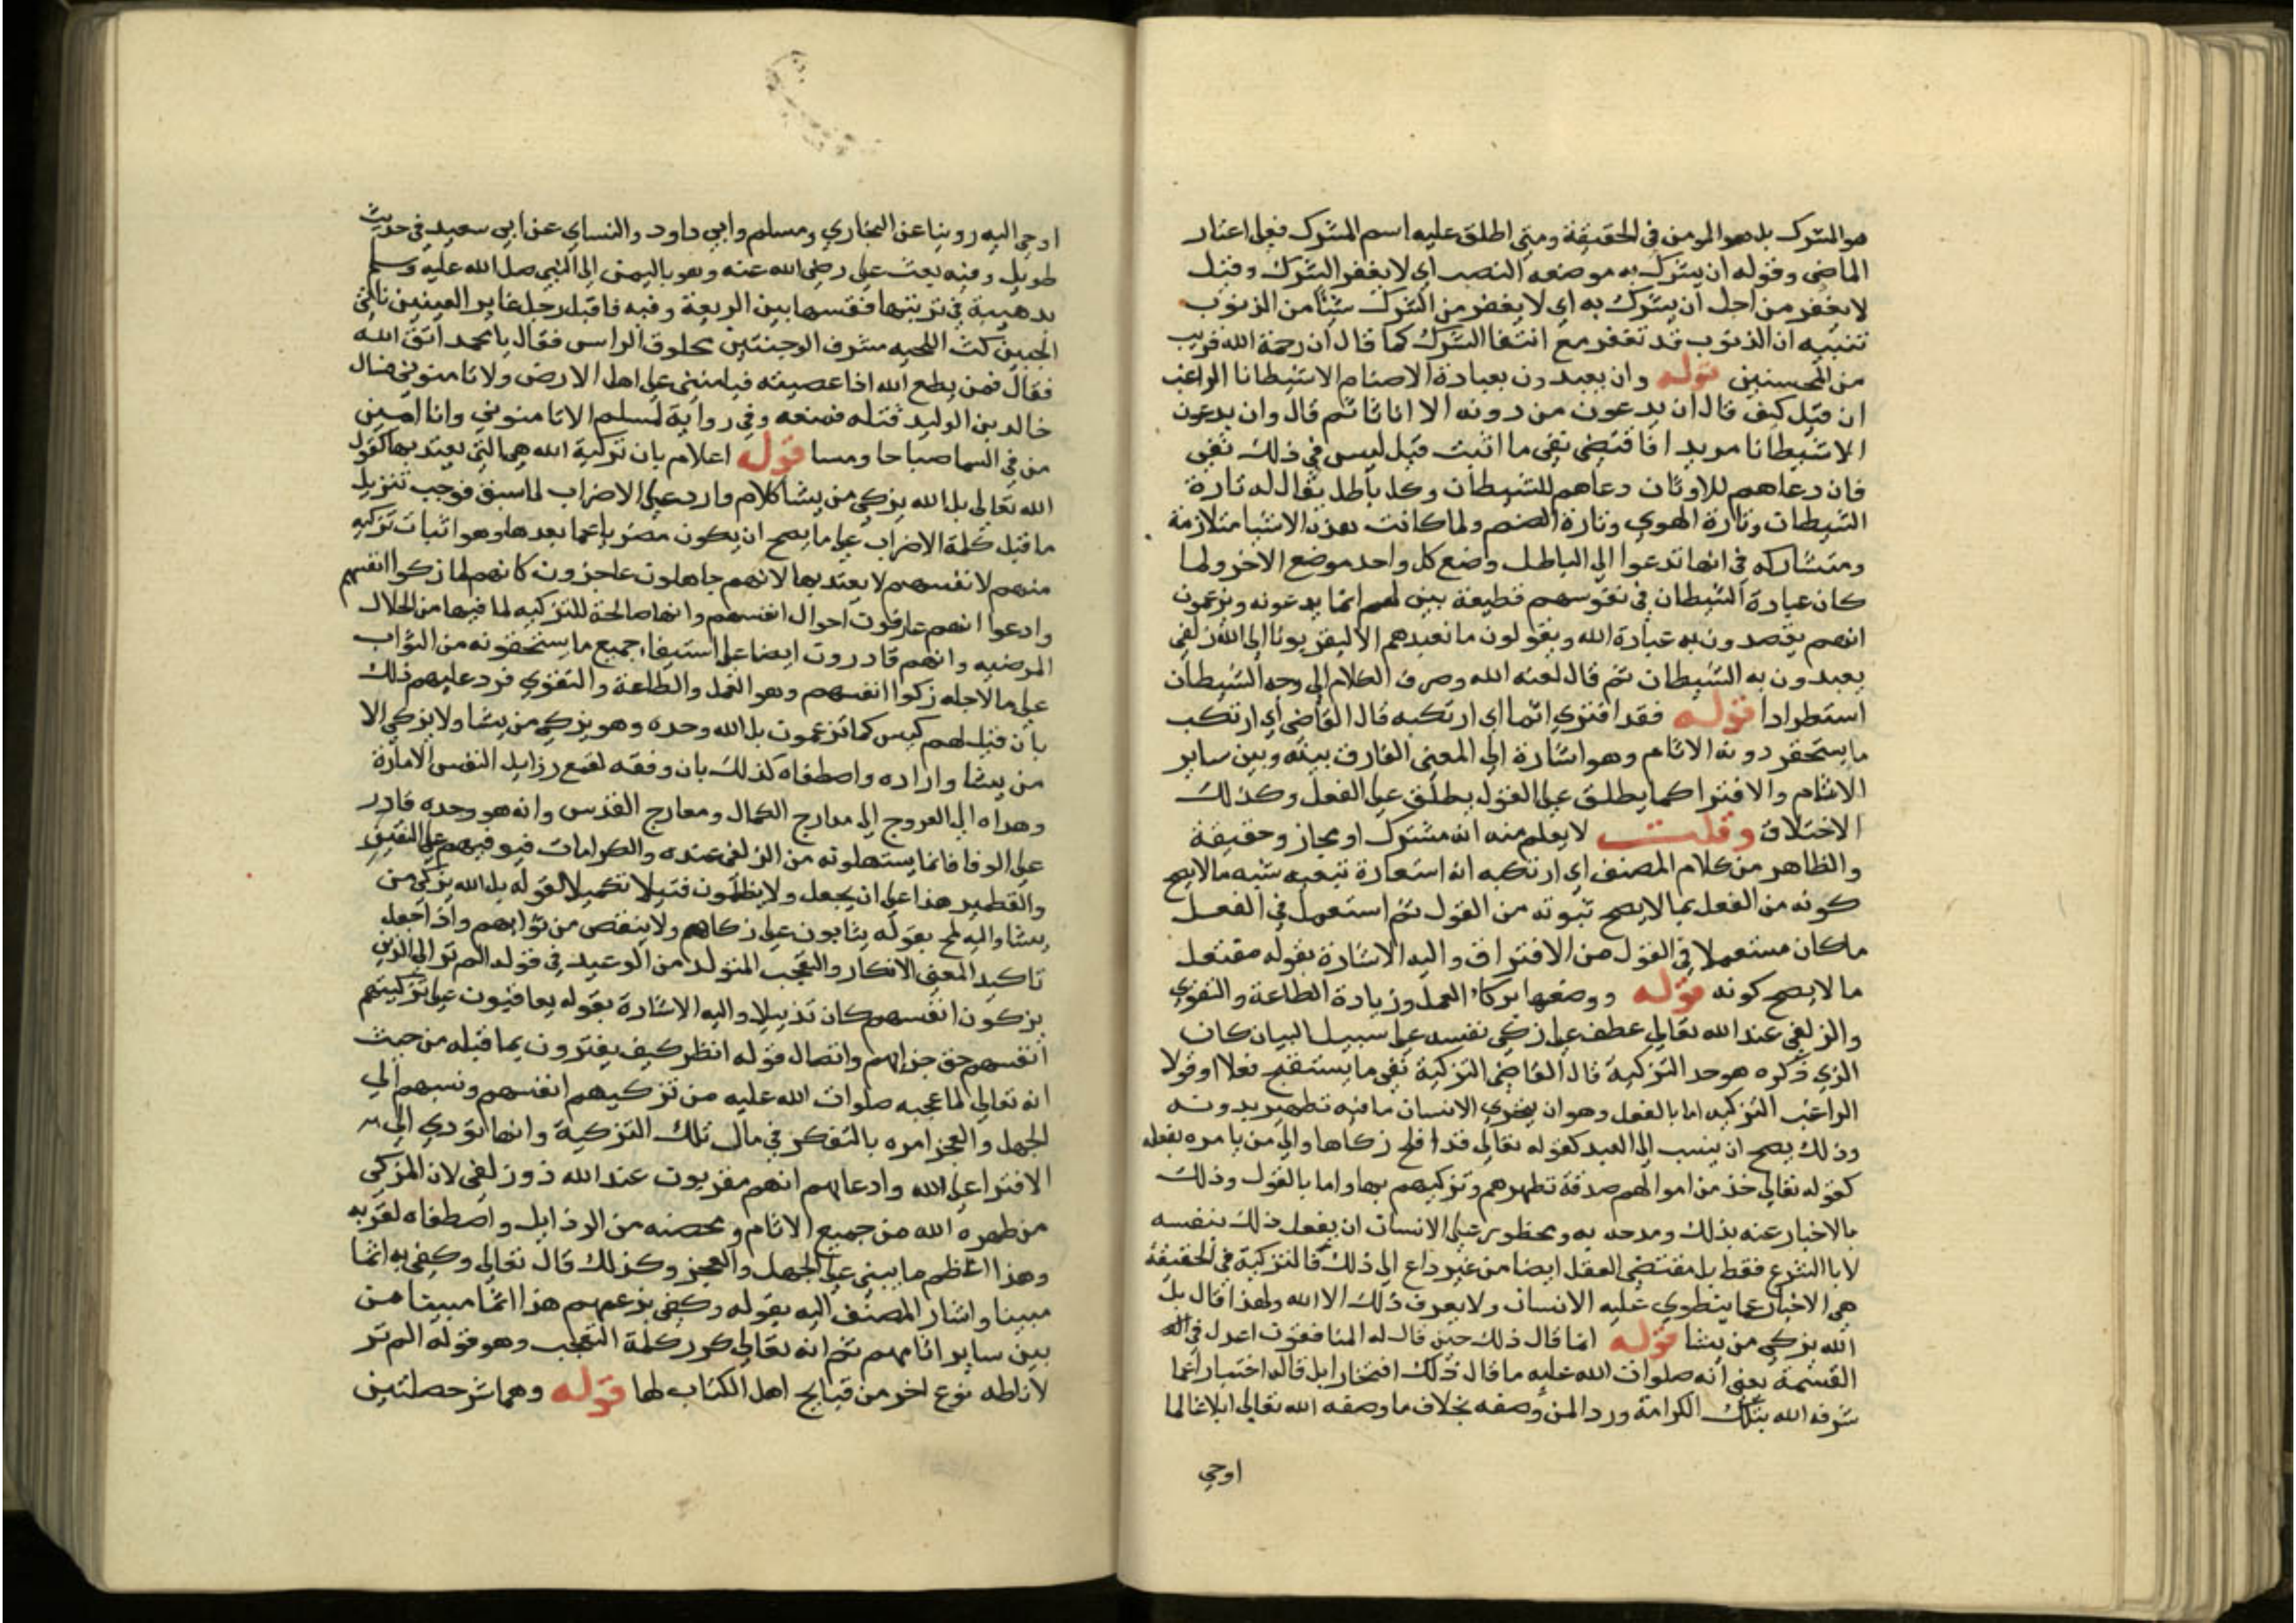 هو المشرك بل هو المومن في الحقيقة ومتى اطلق عليه اسم المشرك فعلى اعتبار
الماضي وقوله ان يشرك به موضعه النصب اي لا يغفر الشرك وقيل
لا يغفر من اجل ان يشرك به اي لا يغفر من الشرك شيئا من الذنوب
تنبيه ان الذنوب قد تغفر مع انتفا الشرك كما قال ان رحمة الله قريب
من المحسنين قوله وان يعبدون بعبادة الاصنام الا شيطانا الراغب
ان قيل كيف قال ان يدعون من دونه الا اناثا ثم قال وان يدعون
الا شيطانا مريدا فاقتضى نفي ما اثبت قيل ليس في ذلك نفي
فان دعاهم للاوثان دعاهم للشيطان وكل باطل يقال له تارة
الشيطان وتارة الهوي وتارة الصنم ولما كانت هذه الاشيا متلازمة
ومتشاركه في انها تدعوا الى الباطل وضع كل واحد موضع الاخر ولما
كان عبادة الشيطان في نفوسهم فظيعة بين لهم انما يدعونه ويزعمون
انهم يقصدون به عبادة الله ويقولون ما نعبدهم الا ليقربونا الى الله زلفى
يعبدون به الشيطان ثم قال لعنه الله وصرف الكلام الى وجه الشيطان
استطرادا قوله فقد افترى اثما اي ارتكبه قال القاضي اي ارتكب
ما يستحقر دونه الاثام وهو اشارة الى المعنى الفارق بينه وبين ساير
الاثام والافترا كما يطلق على القول يطلق على الفعل وكذلك
الاختلاق وقلت لا يعلم منه انه مشترك او مجاز وحقيقة
والظاهر من كلام المصنف اي ارتكبه انه استعارة تبعيه شبه ما لا يصح
كونه من الفعل بما لا يصح ثبوته من القول ثم استعمل في الفعل
ما كان مستعملا في القول من الافتراف واليه الاشارة بقوله مفتعل
ما لا يصح كونه قوله ووصفها بزكاء العمل وزيادة الطاعة والتقوي
والزلفى عند الله تعالى عطف على زكى نفسه على سبيل البيان كان
الذي ذكره هو حد التزكية قال القاضي التزكية نفي ما يستقبح فعلا او قولا
الراغب التزكيه اما بالفعل وهو ان يتحرى الانسان ما فيه تطهير بدونه
وذلك يصح ان ينسب الى العبد كقوله تعالى قد افلح زكاها والى من يامره بفعله
كقوله تعالى خذ من اموالهم صدقة تطهرهم وتزكيهم بها واما بالقول وذلك
بالاخبار عنه بذلك ومدحه به ومحظور على الانسان ان يفعل ذلك بنفسه
لا بالشرع فقط بل مقتضى العقل ايضا من غير داع الى ذلك فالتزكية في الحقيقة
هي الاخبار عما ينطوي عليه الانسان ولا يعرف ذلك الا الله ولهذا قال بل
الله يزكي من يشا قوله انما قال ذلك حين قال له المنافقون اعدل في
القسمة يعني انه صلوات الله عليه ما قال ذلك افتخارا بل قاله اختبارا عما
شرفه الله بتلك الكرامة ورد المن وصفه بخلاف ما وصفه الله تعالى ابلاغا لما
اوحي
اوحي اليه روينا عن البخاري ومسلم وابي داود والنساي عن ابي سعيد في حديث
طويل وفيه بعث علي رضي الله عنه وهو باليمن الى النبي صلى الله عليه وسلم
بدهيبة في تربتها فقسمها بين اربعة وفيه فاقبل رجل غاير العينين ناتي
الجبين كث اللحيه مشرف الوجنتين محلوق الراس فقال يا محمد اتق الله
فقال فمن يطع الله اذا عصيته فيامنني على اهل الارض ولا تامنوني فسال
خالد بن الوليد قتله فمنعه وفي رواية لمسلم الا تامنوني وانا امين
من في السما صباحا ومسا قوله اعلام بان تزكية الله هي التي يعتد بها كقول
الله تعالى بل الله يزكي من يشا كلام وارد على الاضراب لما سبق فوجب تنزيل
ما قبل كلمة الاضراب على ما يصح ان يكون مضربا عما بعدها وهو اثبات تزكيه
منهم لانفسهم لا يعتد بها لانهم جاهلون عاجزون كانهم لما زكوا انفسهم
وادعوا انهم عارفون احوال انفسهم وانها صالحة للتزكيه لما فيها من الخلال
المرضيه وانهم قادرون ايضا على استيفاء جميع ما يستحقونه من الثواب
على ما لاجله زكوا انفسهم وهو العمل والطاعة والتقوي فرد عليهم ذلك
بان قيل لهم ليس كما تزعمون بل الله وحده وهو يزكي من يشا ولا يزكي الا
من يشا واراده واصطفاه كذلك بان وفقه لقمع رزايل النفس الامارة
وهداه الى العروج الى مدارج الكمال ومعارج القدس وانه هو وحده قادر
على الوفا فانما يستهلونه من الزلفى عنده والكرامات فيوفيهم على النقير
والقطمير هذا على ان يجعل ولا يظلمون فتيلا تكميلا لقوله بل الله يزكي من
يشا واليه لمح بقوله يثابون على زكاهم ولا ينقص من ثوابهم واذا جعل
تاكيد المعنى الانكار والتعجب المتولد من الوعيد في قوله الم تر الى الذين
يزكون انفسهم كان تذييلا واليه الاشارة بقوله يعاقبون على تزكيتهم
انفسهم حق جزائهم واتصال قوله انظر كيف يفترون بما قبله من حيث
انه تعالى لما عجبه صلوات الله عليه من تزكيهم انفسهم ونسبهم الى
الجهل والعجز امره بالتفكر في مال تلك التزكية وانها تودي الى
الافترا على الله وادعائهم انهم مقربون عند الله ذو زلفى لان المزكى
من طهره الله من جميع الاثام ومحصنه من الرذايل واصطفاه لقربه
وهذا اعظم ما يبنى على الجهل والعجز وكذلك قال تعالى وكفى به اثما
مبينا واشار المصنف اليه بقوله وكفى بزعمهم هذا اثما مبينا من
بين ساير اثامهم ثم انه تعالى كرر كلمة التعجب وهو قوله الم تر
لاناطه نوع اخر من قبايح اهل الكتاب لها قوله وهما شر خصلتين